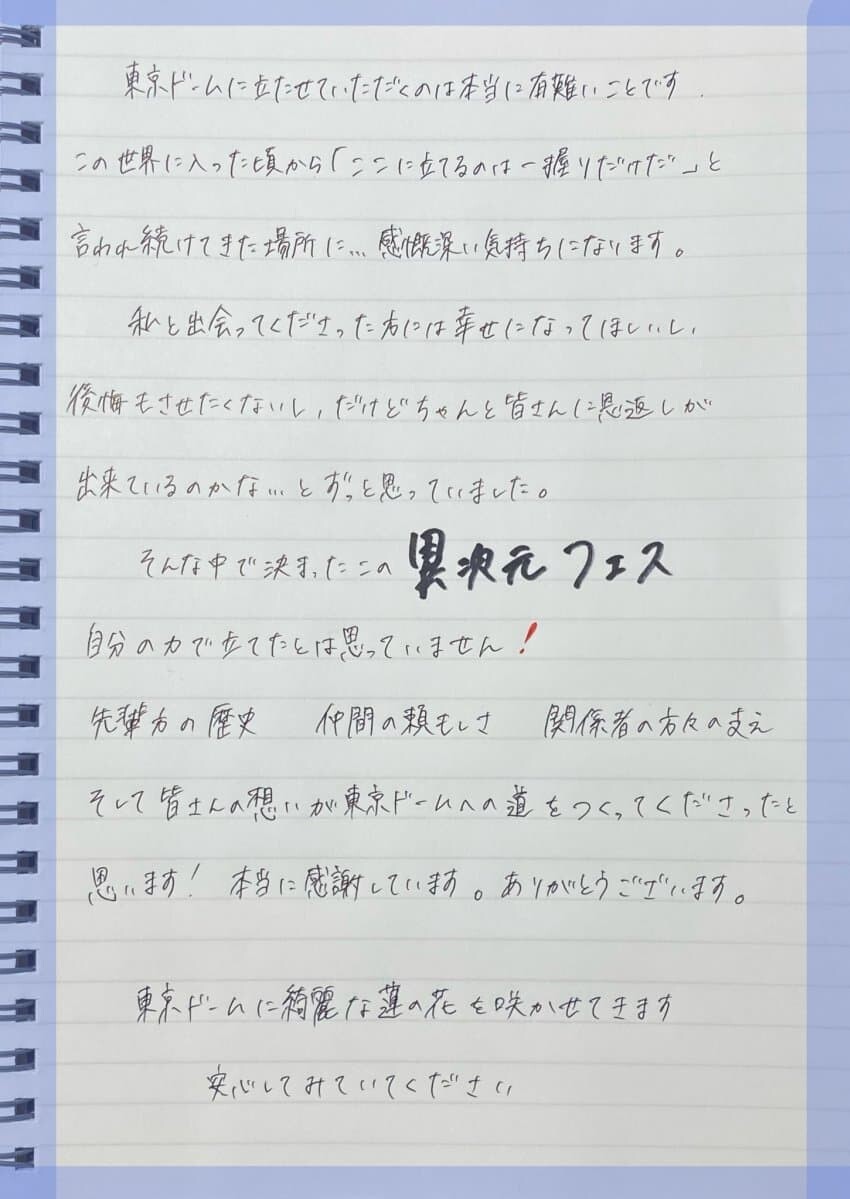 東京ドームに立たせていただくのは本当に有難いことです.
この世界に入った頃から「ここに立てるのは一握りだけだ」と
言われ続けてきた場所に…感慨深い気持ちになります。
私と出会ってくださった方には幸せになってほしいし、
後悔もさせたくないし、だけどちゃんと皆さんに恩返しが
出来ているのかな…とずっと思っていました。
そんな中で決まったこの 異次元フェス
自分の力で立てたとは思っていません!
先輩方の歴史 仲間の頼もしさ 関係者の方々の支え
そして皆さんの想いが東京ドームへの道をつくってくださったと
思います! 本当に感謝しています。ありがとうございます。
東京ドームに綺麗な蓮の花を咲かせてきます
安心してみていてください